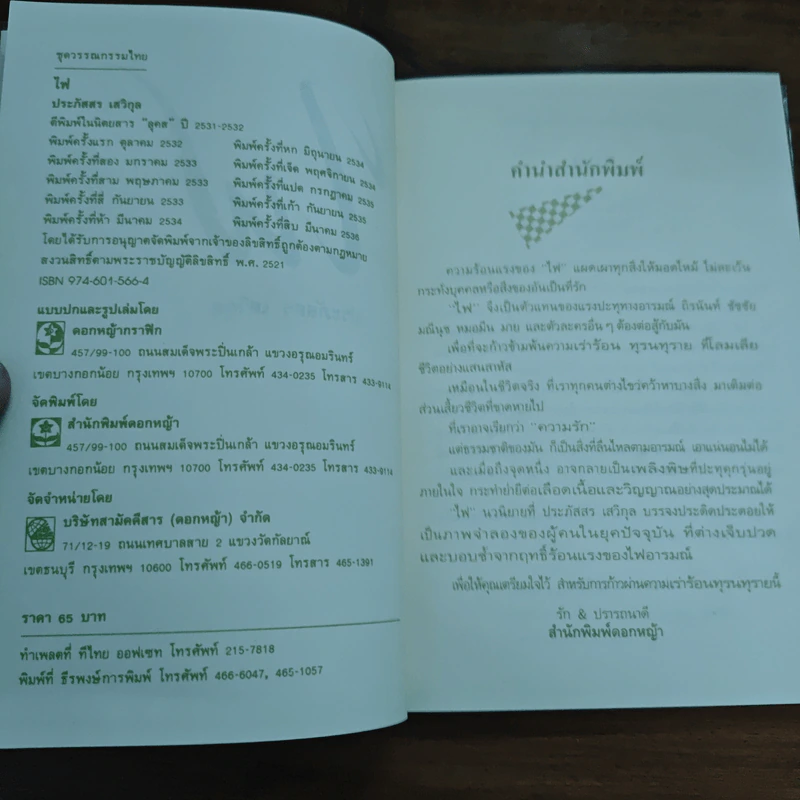 ชุดวรรณกรรมไทย
ไฟ
ประภัสสร เสวิกุล
ตีพิมพ์ในนิตยสาร "ลูคส" ปี 2531-2532
พิมพ์ครั้งแรก ตุลาคม 2532
พิมพ์ครั้งที่สอง มกราคม 2533
พิมพ์ครั้งที่สาม พฤษภาคม 2533
พิมพ์ครั้งที่สี่ กันยายน 2533
พิมพ์ครั้งที่ห้า มีนาคม 2534
พิมพ์ครั้งที่หก มิถุนายน 2534
พิมพ์ครั้งที่เจ็ด พฤศจิกายน 2534
พิมพ์ครั้งที่แปด กรกฎาคม 2535
พิมพ์ครั้งที่เก้า กันยายน 2535
พิมพ์ครั้งที่สิบ มีนาคม 2536
โดยได้รับการอนุญาตจัดพิมพ์จากเจ้าของลิขสิทธิ์ถูกต้องตามกฎหมาย
สงวนสิทธิ์ตามพระราชบัญญัติลิขสิทธิ์ พ.ศ. 2521
ISBN 974-601-566-4
แบบปกและรูปเล่มโดย
ดอกหญ้ากราฟิก
457/99-100 ถนนสมเด็จพระปิ่นเกล้า แขวงอรุณอมรินทร์
เขตบางกอกน้อย กรุงเทพฯ 10700 โทรศัพท์ 434-0235 โทรสาร 433-9114
จัดพิมพ์โดย
สำนักพิมพ์ดอกหญ้า
457/99-100 ถนนสมเด็จพระปิ่นเกล้า แขวงอรุณอมรินทร์
เขตบางกอกน้อย กรุงเทพฯ 10700 โทรศัพท์ 434-0235 โทรสาร 433-9114
จัดจำหน่ายโดย
บริษัทสามัคคีสาร (ดอกหญ้า) จำกัด
71/12-19 ถนนเทศบาลสาย 2 แขวงวัดกัลยาณ์
เขตธนบุรี กรุงเทพฯ 10600 โทรศัพท์ 466-0519 โทรสาร 465-1391
ราคา 65 บาท
ทำเพลตที่ ทีไทย ออฟเซท โทรศัพท์ 215-7818
พิมพ์ที่ ธีรพงษ์การพิมพ์ โทรศัพท์ 466-6047, 465-1057
คำนำสำนักพิมพ์
ความร้อนแรงของ "ไฟ" แผดเผาทุกสิ่งให้มอดไหม้ ไม่ละเว้น
กระทั่งบุคคลหรือสิ่งของอันเป็นที่รัก
"ไฟ" จึงเป็นตัวแทนของแรงปะทุทางอารมณ์ ถิรนันท์ ชัชชัย
มณีนุช หมอมีน มาย และตัวละครอื่นๆ ต้องต่อสู้กับมัน
เพื่อที่จะก้าวข้ามพ้นความเร่าร้อน ทุรนทุราย ที่โลมเลีย
ชีวิตอย่างแสนสาหัส
เหมือนในชีวิตจริง ที่เราทุกคนต่างไขว่คว้าหาบางสิ่ง มาเติมต่อ
ส่วนเสี้ยวชีวิตที่ขาดหายไป
ที่เราอาจเรียกว่า "ความรัก"
แต่ธรรมชาติของมัน ก็เป็นสิ่งที่ลื่นไหลตามอารมณ์ เอาแน่นอนไม่ได้
และเมื่อถึงจุดหนึ่ง อาจกลายเป็นเพลิงพิษที่ปะทุคุกรุ่นอยู่
ภายในใจ กระทำย่ำยีต่อเลือดเนื้อและวิญญาณอย่างสุดประมาณได้
"ไฟ" นวนิยายที่ ประภัสสร เสวิกุล บรรจงประดิดประดอยให้
เป็นภาพจำลองของผู้คนในยุคปัจจุบัน ที่ต่างเจ็บปวด
และบอบช้ำจากฤทธิ์ร้อนแรงของไฟอารมณ์
เพื่อให้คุณเตรียมใจไว้ สำหรับการก้าวผ่านความเร่าร้อนทุรนทุรายนี้
รัก & ปรารถนาดี
สำนักพิมพ์ดอกหญ้า